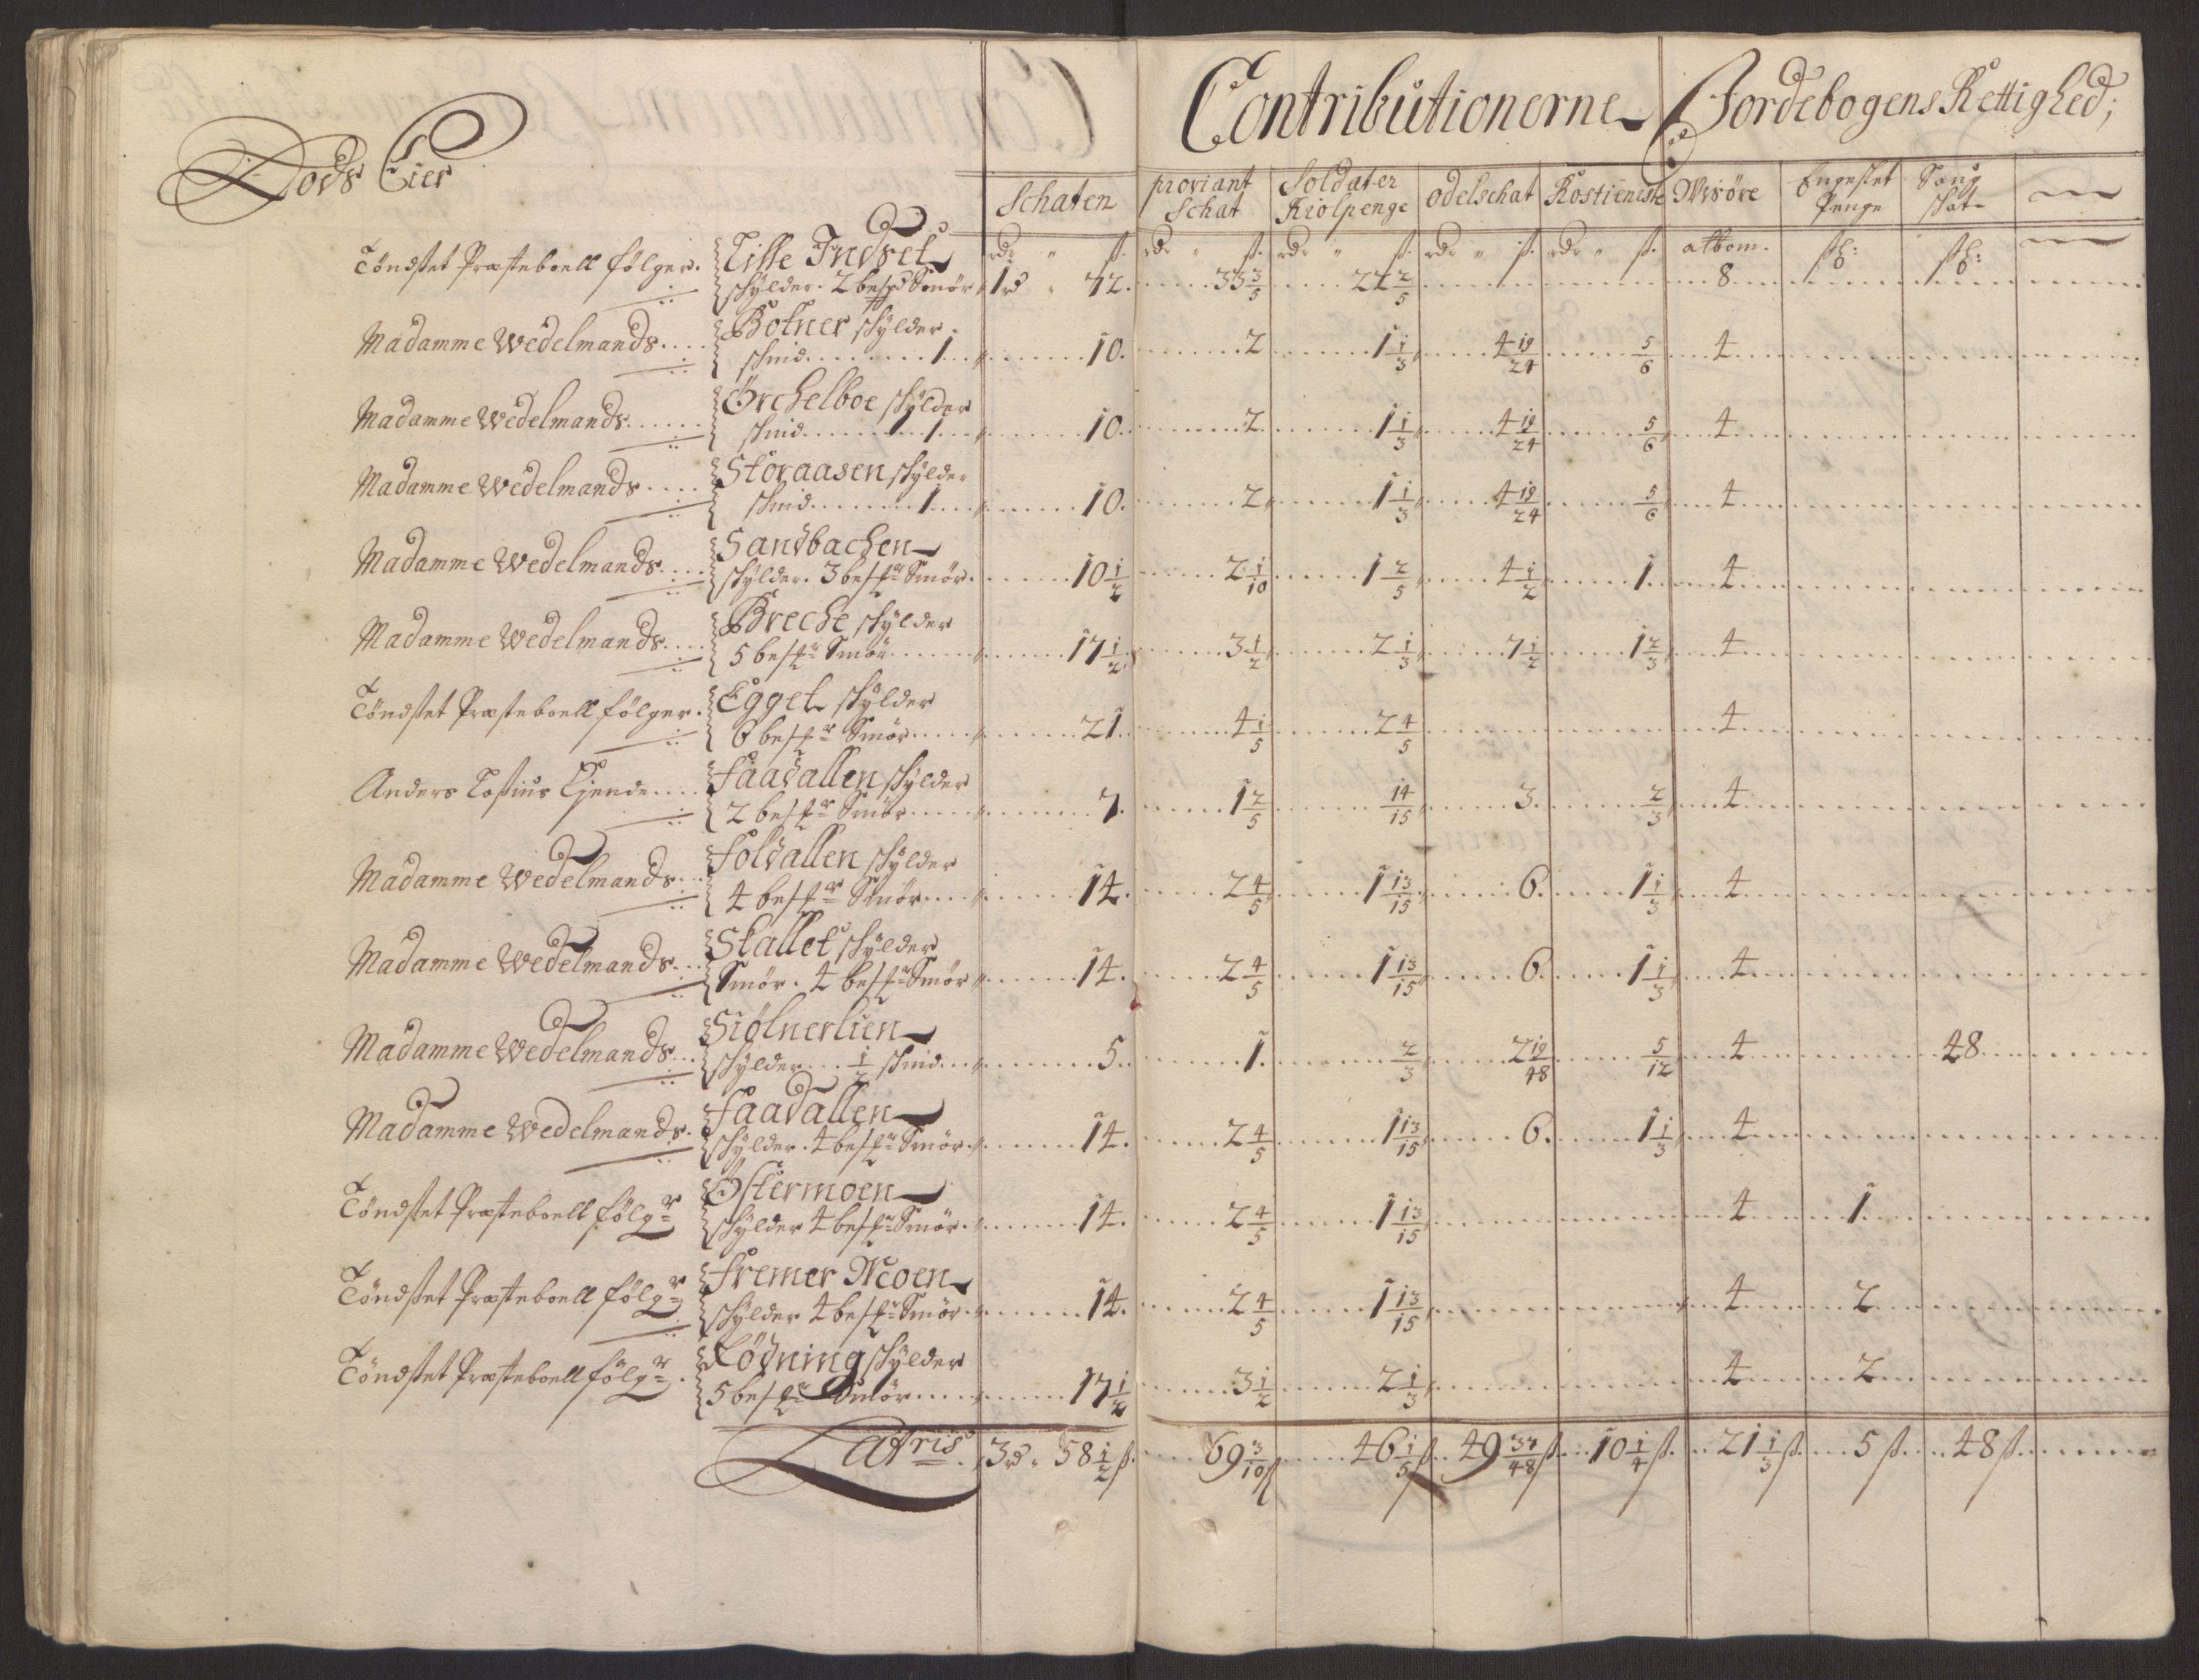 Contributionerne Jordebogens Rettighed;
Gods Eier
Schaten proviant Schat Soldater Kiolpenge odelschat Rostieniste Wisöre Engeslet Penge Saug skat
rdr " ß. rdr " ß. rdr " ß. rdr " ß. rdr " ß. atbom. ß: ß:
Töndset Præsteboell følger. Lille Indset
skylder. 2 besmd Smör 1rd " 72. 33 3/5 22 2/5 8
Madamme Wedelmands Botner skylder.
skind 1 10. 2 1 1/3 4 19/24 5/6 4
Madamme Wedelmands Örchelboe skylder
skind 1 10. 2 1 1/3 4 19/24 5/6 4
Madamme Wedelmands Storaasen skylder
skind 1 10. 2 1 1/3 4 19/24 5/6 4
Madamme Wedelmands Sandbachen
skylder. 3 besmr Smör. 10 1/2 2 1/10 1 2/5 4 1/2 1 4
Madamme Wedelmands Breche skylder
5 besmr Smör 17 1/2 3 1/2 2 1/3 7 1/2 1 2/3 4
Töndset Præsteboell følger. Egget skylder
6 besmr Smör 21. 4 1/5 2 4/5 4
Anders Tostius Ejende Faadallen skylder
2 besmr Smör 7. 1 2/5 14/15 3. 2/3 4
Madamme Wedelmands Foldallen skylder
4 besmr Smör 14. 2 4/5 1 13/15 6. 1 1/3 4
Madamme Wedelmands Stallet skylder
Smör. 4 besmr Smör 14. 2 4/5 1 13/15 6. 1 1/3 4
Madamme Wedelmands Siölnerlien
skylder 1/2 skind 5. 1. 2/3 2 19/48 5/12 4 48
Madamme Wedelmands. Faadallen
skylder. 4 besmr Smör. 14. 2 4/5 1 13/15 6. 1 1/3 4
Töndset Præsteboell følgr Östermoen
skylder 4 besmr Smör. 14. 2 4/5 1 13/15 4 1
Töndset Præsteboell følgr Fremer Moen
skylder 4 besmr Smör. 14. 2 4/5 1 13/15 4 2
Töndset Præsteboell følgr. Rödning skylder
5 besmr Smör 17 1/2 3 1/2 2 1/3 4 2
Latris 3rd " 58 1/2 ß. 69 3/10 ß 46 1/5 ß 49 37/48 ß 10 1/4 ß. 21 1/3 ß. 5 ß. 48 ß.